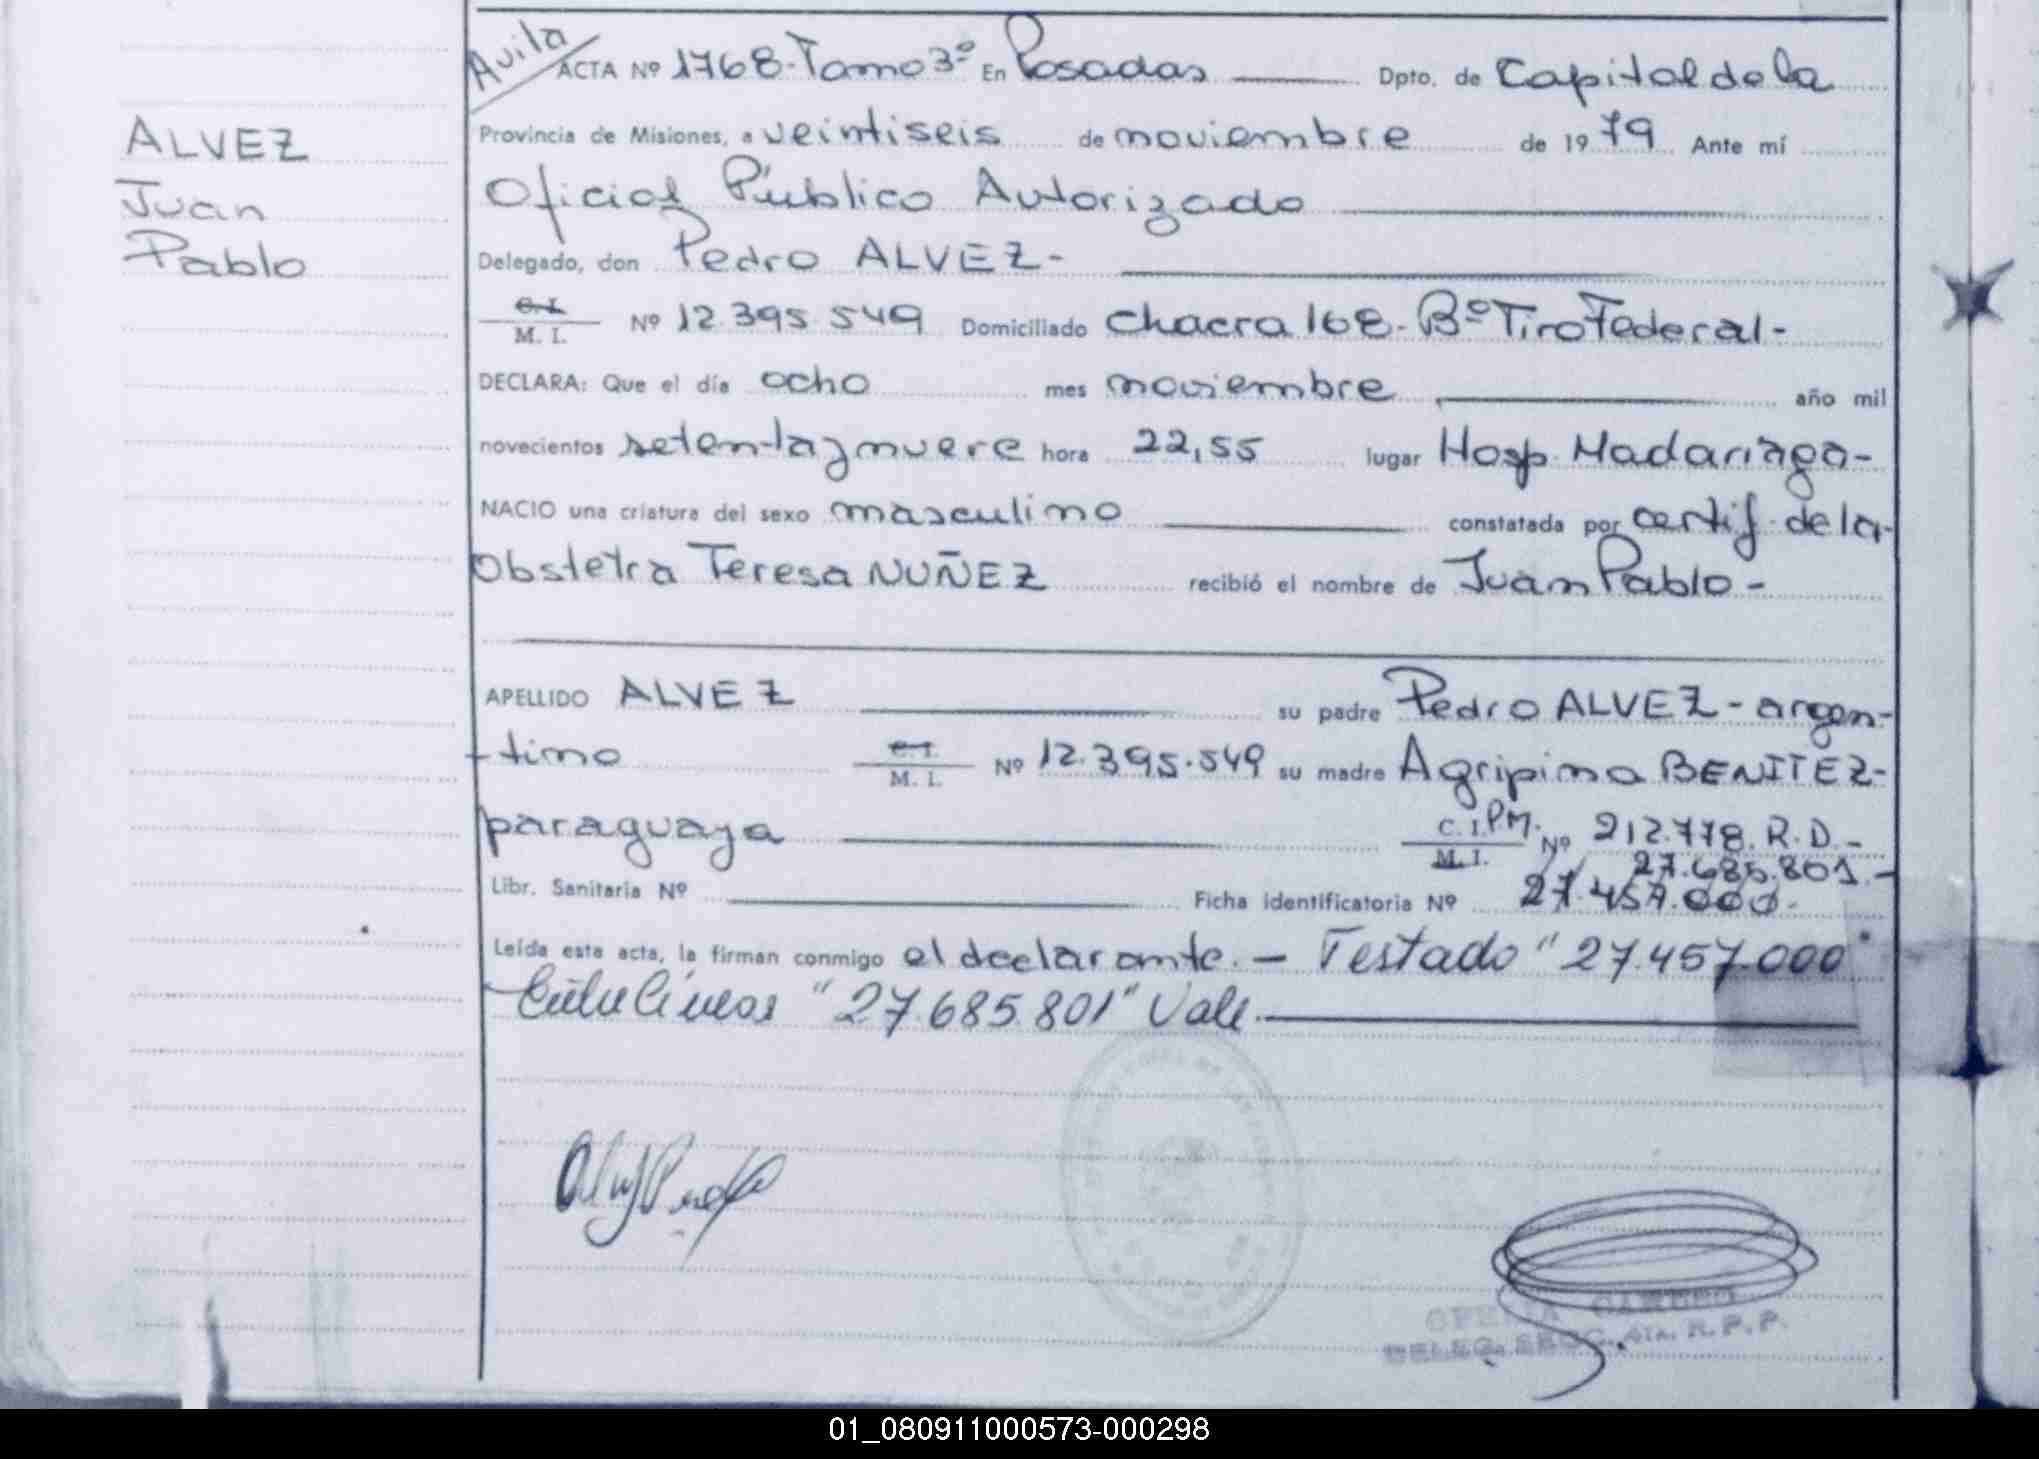 Avila
ACTA Nº 1768-Tomo 3º En Posadas Dpto. de Capital de la
ALVEZ
Juan
Pablo
Provincia de Misiones, a veintiseis de noviembre de 1979 Ante mí
Oficial Público Autorizado
Delegado, don Pedro ALVEZ-
C.I.
M. I. Nº 12.395.549 Domiciliado Chacra 168-Bº Tiro Federal-
DECLARA: Que el día ocho mes noviembre año mil
novecientos setentaynueve hora 22,55 lugar Hosp. Madariaga-
NACIO una criatura del sexo masculino constatada por certif. de la-
Obstetra Teresa NUÑEZ recibió el nombre de Juan Pablo-
APELLIDO ALVEZ su padre Pedro ALVEZ-argen-
-tino C.I. M. I. Nº 12.395.549 su madre Agripina BENITEZ-
paraguaya C. I. P.M. M. I. Nº 212.778. R.D.-
27.685.801.-
Libr. Sanitaria Nº Ficha identificatoria Nº 27.457.000-
Leída esta acta, la firman conmigo el declarante.- Testado "27.457.000"
Entrelíneas "27.685.801" Vale.
DELEG. SECC. 4ta. R.P.P.
01_080911000573-000298